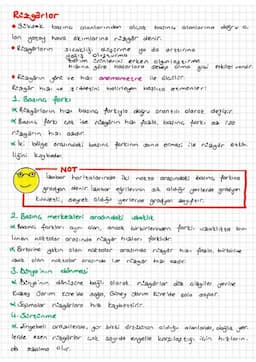 Rüzgârlar
• Yüksek basınç alanlarından alçak basınç alanlarına doğru o-
lan yatay hava akımlarına rüzgâr denir.
• Rüzgârların sıcaklığı düşürme ya da arttırma
yağış oluşturma
tarım ürünlerini erken olgunlaştırma
gibi etkileri vardır.
• Rüzgârın yönü ve hızı anemometre ile ölçülür.
Rüzgâr hızı ve şiddetini belirleyen başlıca etmenler:
1. Basınç farkı
Rüzgârların hızı basınç farkıyla doğru orantılı olarak değişir.
Basınç farkı çok ise rüzgârın hızı fazla, basınç farkı az ise
rüzgârın hızı azdır.
İki bölge arasındaki basınç farkının sona ermesi ile rüzgâr etkin-
liğini kaybeder.
NOT
İzobar haritalarında iki nokta arasındaki basınç farkına
gradyan denir. İzobar eğrilerinin sık olduğu yerlerde gradyan
kuvvetli, seyrek olduğu yerlerde gradyan zayıftır.
2. Basınç merkezleri arasındaki uzaklık
Basınç farkları aynı olan, ancak birbirlerinden farklı uzaklıkta bu-
lunan noktalar arasında rüzgâr hızları farklıdır.
Birbirine yakın olan noktalar arasında rüzgâr hızı fazla, birbirine
uzak olan noktalar arasında ise rüzgâr hızı azdır.
3. Dünya'nın dönmesi
Dünya'nın dönüşüne bağlı olarak rüzgârlar
Kuzey Yarım Küre'de sağa, Güney Yarım Küre'de sola sapar.
Sapmalar rüzgârların hızı kaybettirir.
4. Sürtünme
Engebeli arazilerde, yer
yerlerde esen rüzgârlar çok sayıda engelle karşılaştığı için hızların-
da azalma olur.